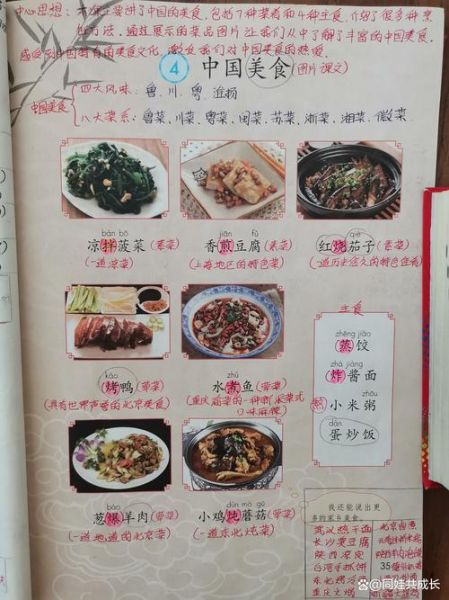 中心思想：本课主要讲了中国的美食，包括7种菜肴和4种主食，介绍了很多种烹
饪方法，通过展示的菜品图片让我们从中了解了丰富的中国美食，
感受到中国特有的美食文化，激发我们对中国美食的热爱。
4 中国美食（图片课文）
中国美食
四大风味：鲁、川、粤、淮扬
八大菜系：鲁菜、川菜、粤菜、闽菜、苏菜、浙菜、湘菜、徽菜
bàn bō
凉拌菠菜（素菜）
（一道凉菜）
jiān fǔ
香煎豆腐（素菜）
（上海地区的特色菜）
qié
红烧茄子（素菜）
（一道历史悠久的特色佳肴）
主食
zhēng jiǎo
蒸饺
zhá jiàng
炸酱面
小米粥
dàn
蛋炒饭
kǎo
烤鸭（荤菜）
（具有世界声誉的北京美食）
zhǔ
水煮鱼（荤菜）
口味麻辣
bào
葱爆羊肉（荤菜）
（一道地道的北京菜）
dùn mó gū
小鸡炖蘑菇（荤菜）
（一道东北炖菜）
我还能说出更
多的家乡美食。
武汉热干面
长沙臭豆腐
台湾手抓饼
重庆火锅
35
@同娃共成长